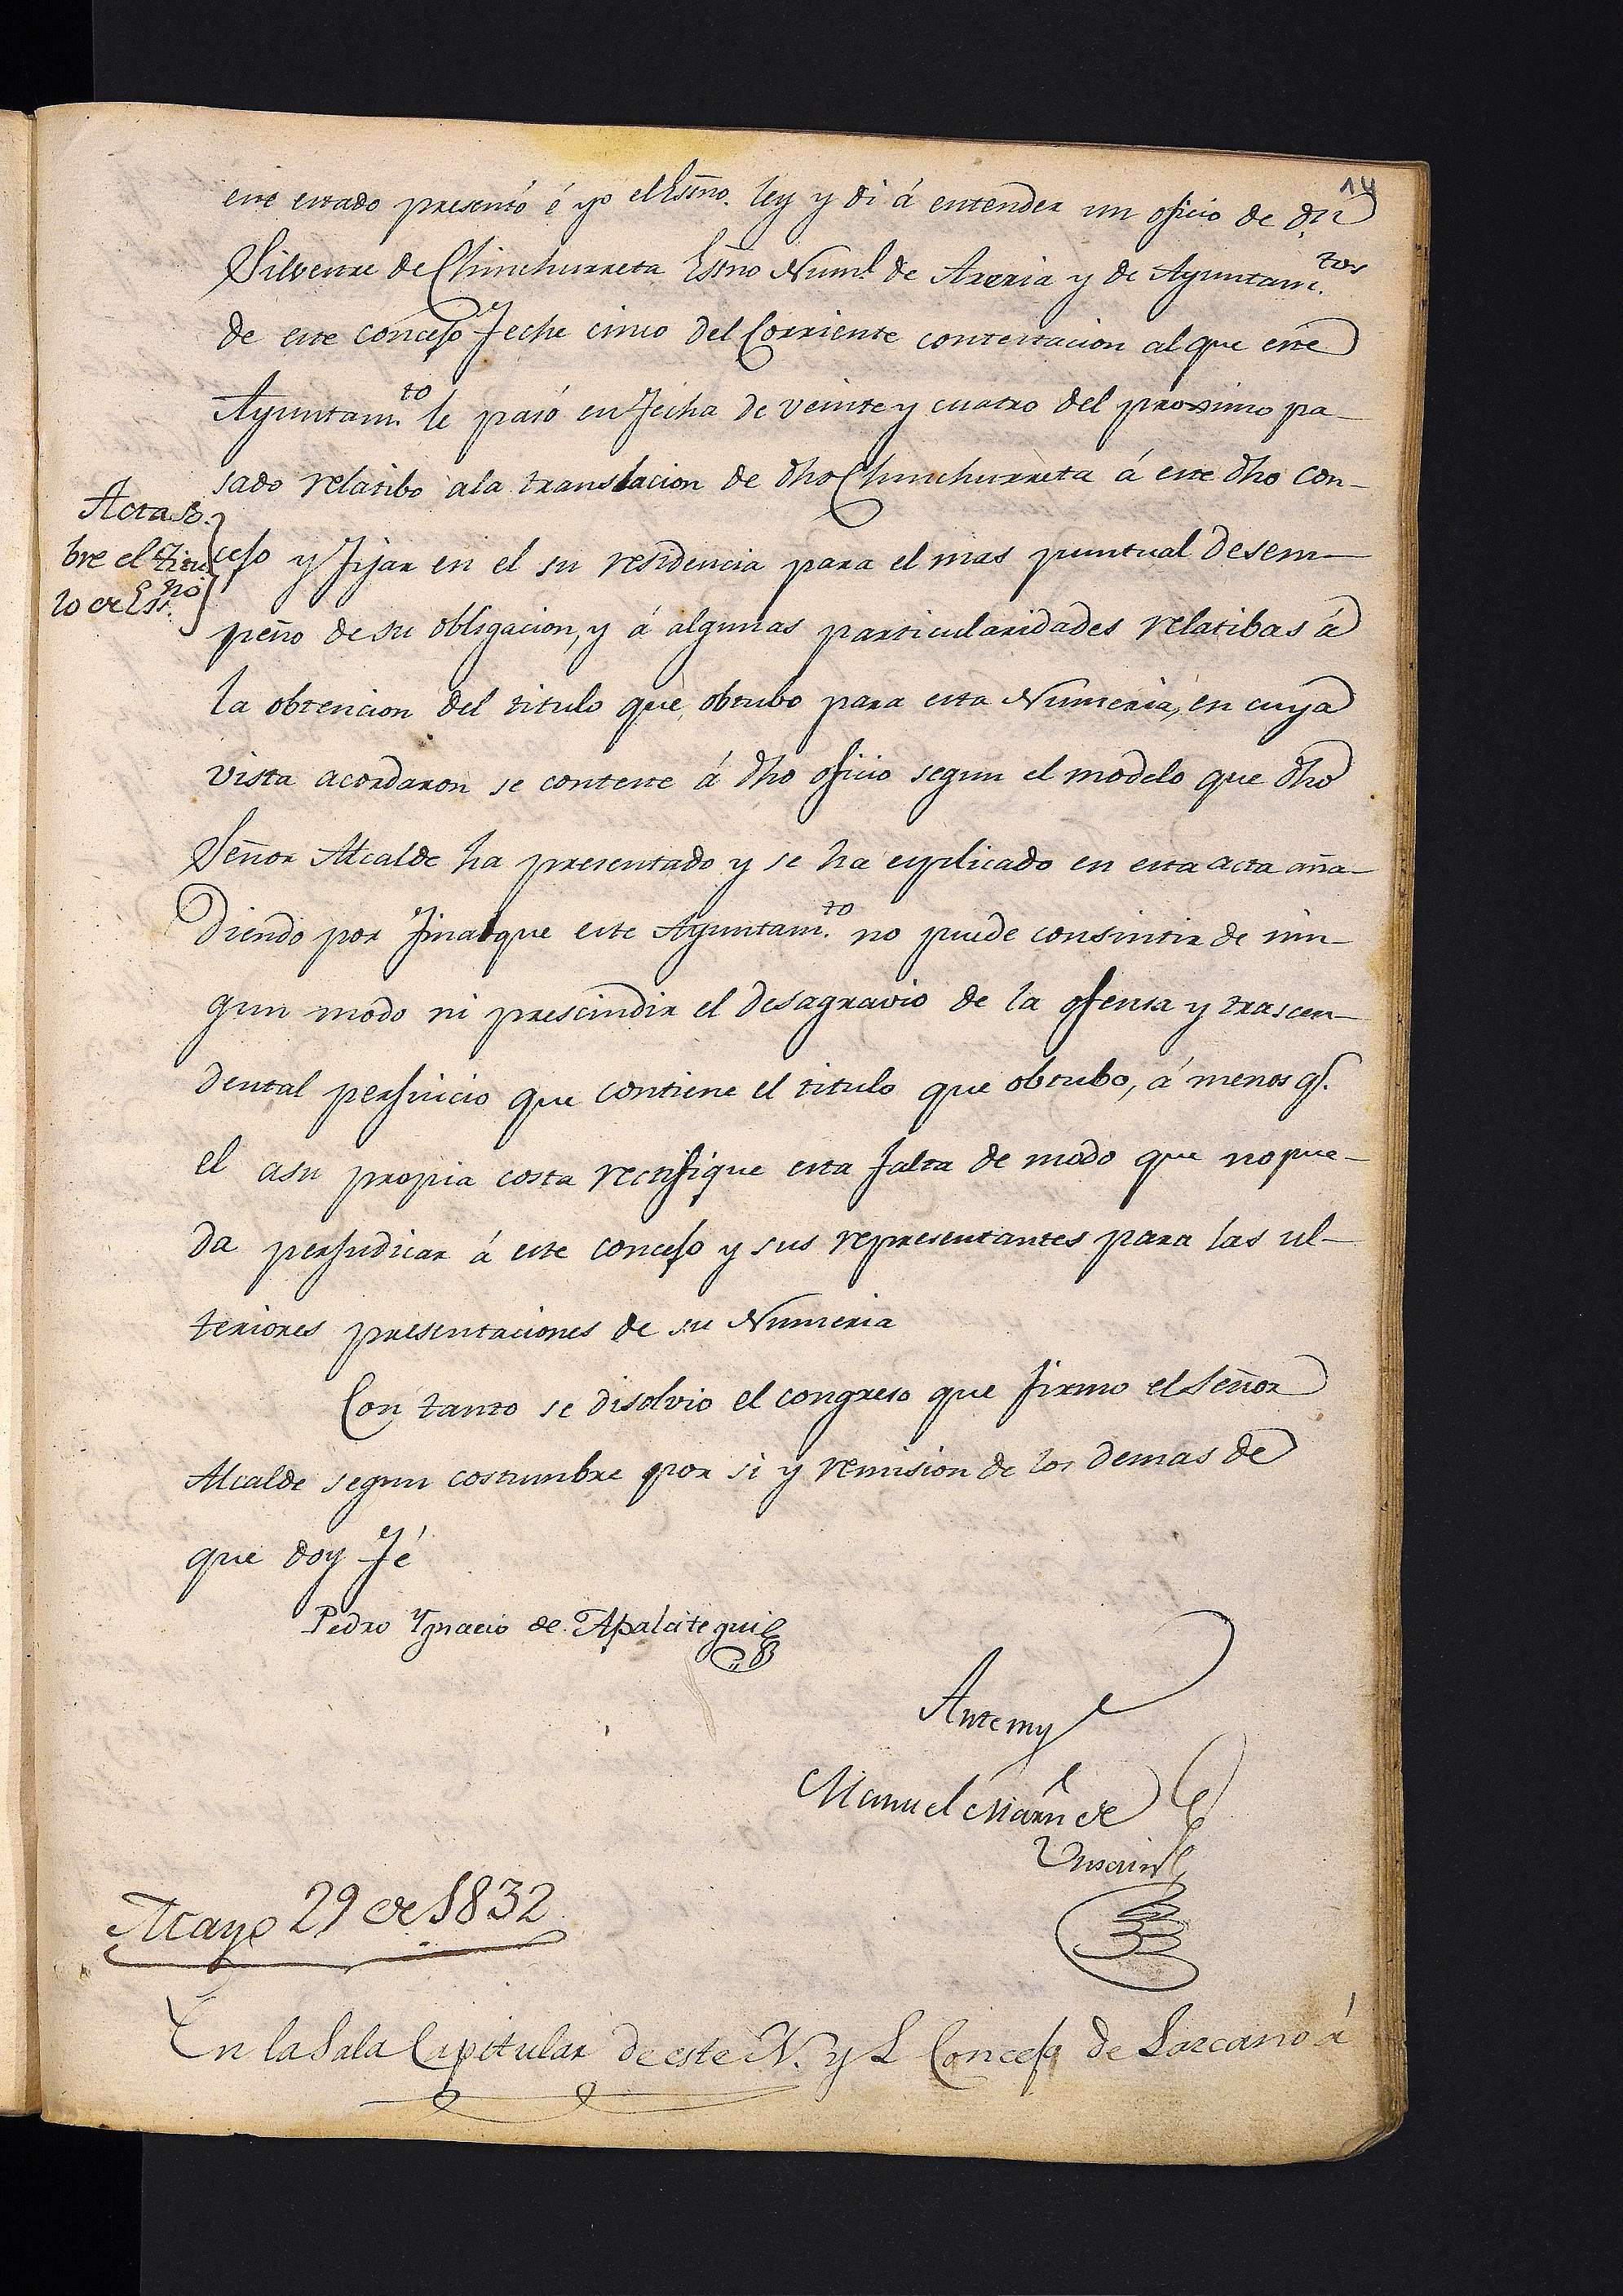 14
este estado presentó é yo el Esno. ley y di á entender un oficio de dn
Silvestre de Chinchurreta Esno Numl. de Areria y de Ayuntamtos.
de este concejo feche cinco del Corriente contestacion al que este
Ayuntamto. le pasó en fecha de veinte y cuatro del proximo pa-
sado relatibo ala translacion de dho Chinchurreta á este dho con-
Acta so-
bre el titu
lo de Essno.
cejo y fijar en el su residencia para el mas puntual desem-
peño de su obligacion, y á algunas particularidades relatibas á
la obtencion del titulo que obtubo para esta Numeria, en cuya
vista acordaron se conteste á dho oficio segun el modelo que dho
Señor Alcalde ha presentado y se ha explicado en esta acta aña-
diendo por final que este Ayuntamto. no puede consintir de nin-
gun modo ni prescindir el desagravio de la ofensa y trascen-
dental perjuicio que contiene el titulo que obtubo, á menos q.
el asu propia costa rectifique esta falta de modo que no pue-
da perjudicar á este concejo y sus representantes para las ul-
teriores presentaciones de su Numeria
Con tanto se disolvio el congreso que firmo el Señor
Alcalde segun costumbre por si y remision de los demas de
que doy fé
Pedro Ygnacio de Apalategui
Antemy
Manuel Marn de
Mayo 29 de 1832
En la Sala Capitular de este N. y L Concejo de Lazcano á